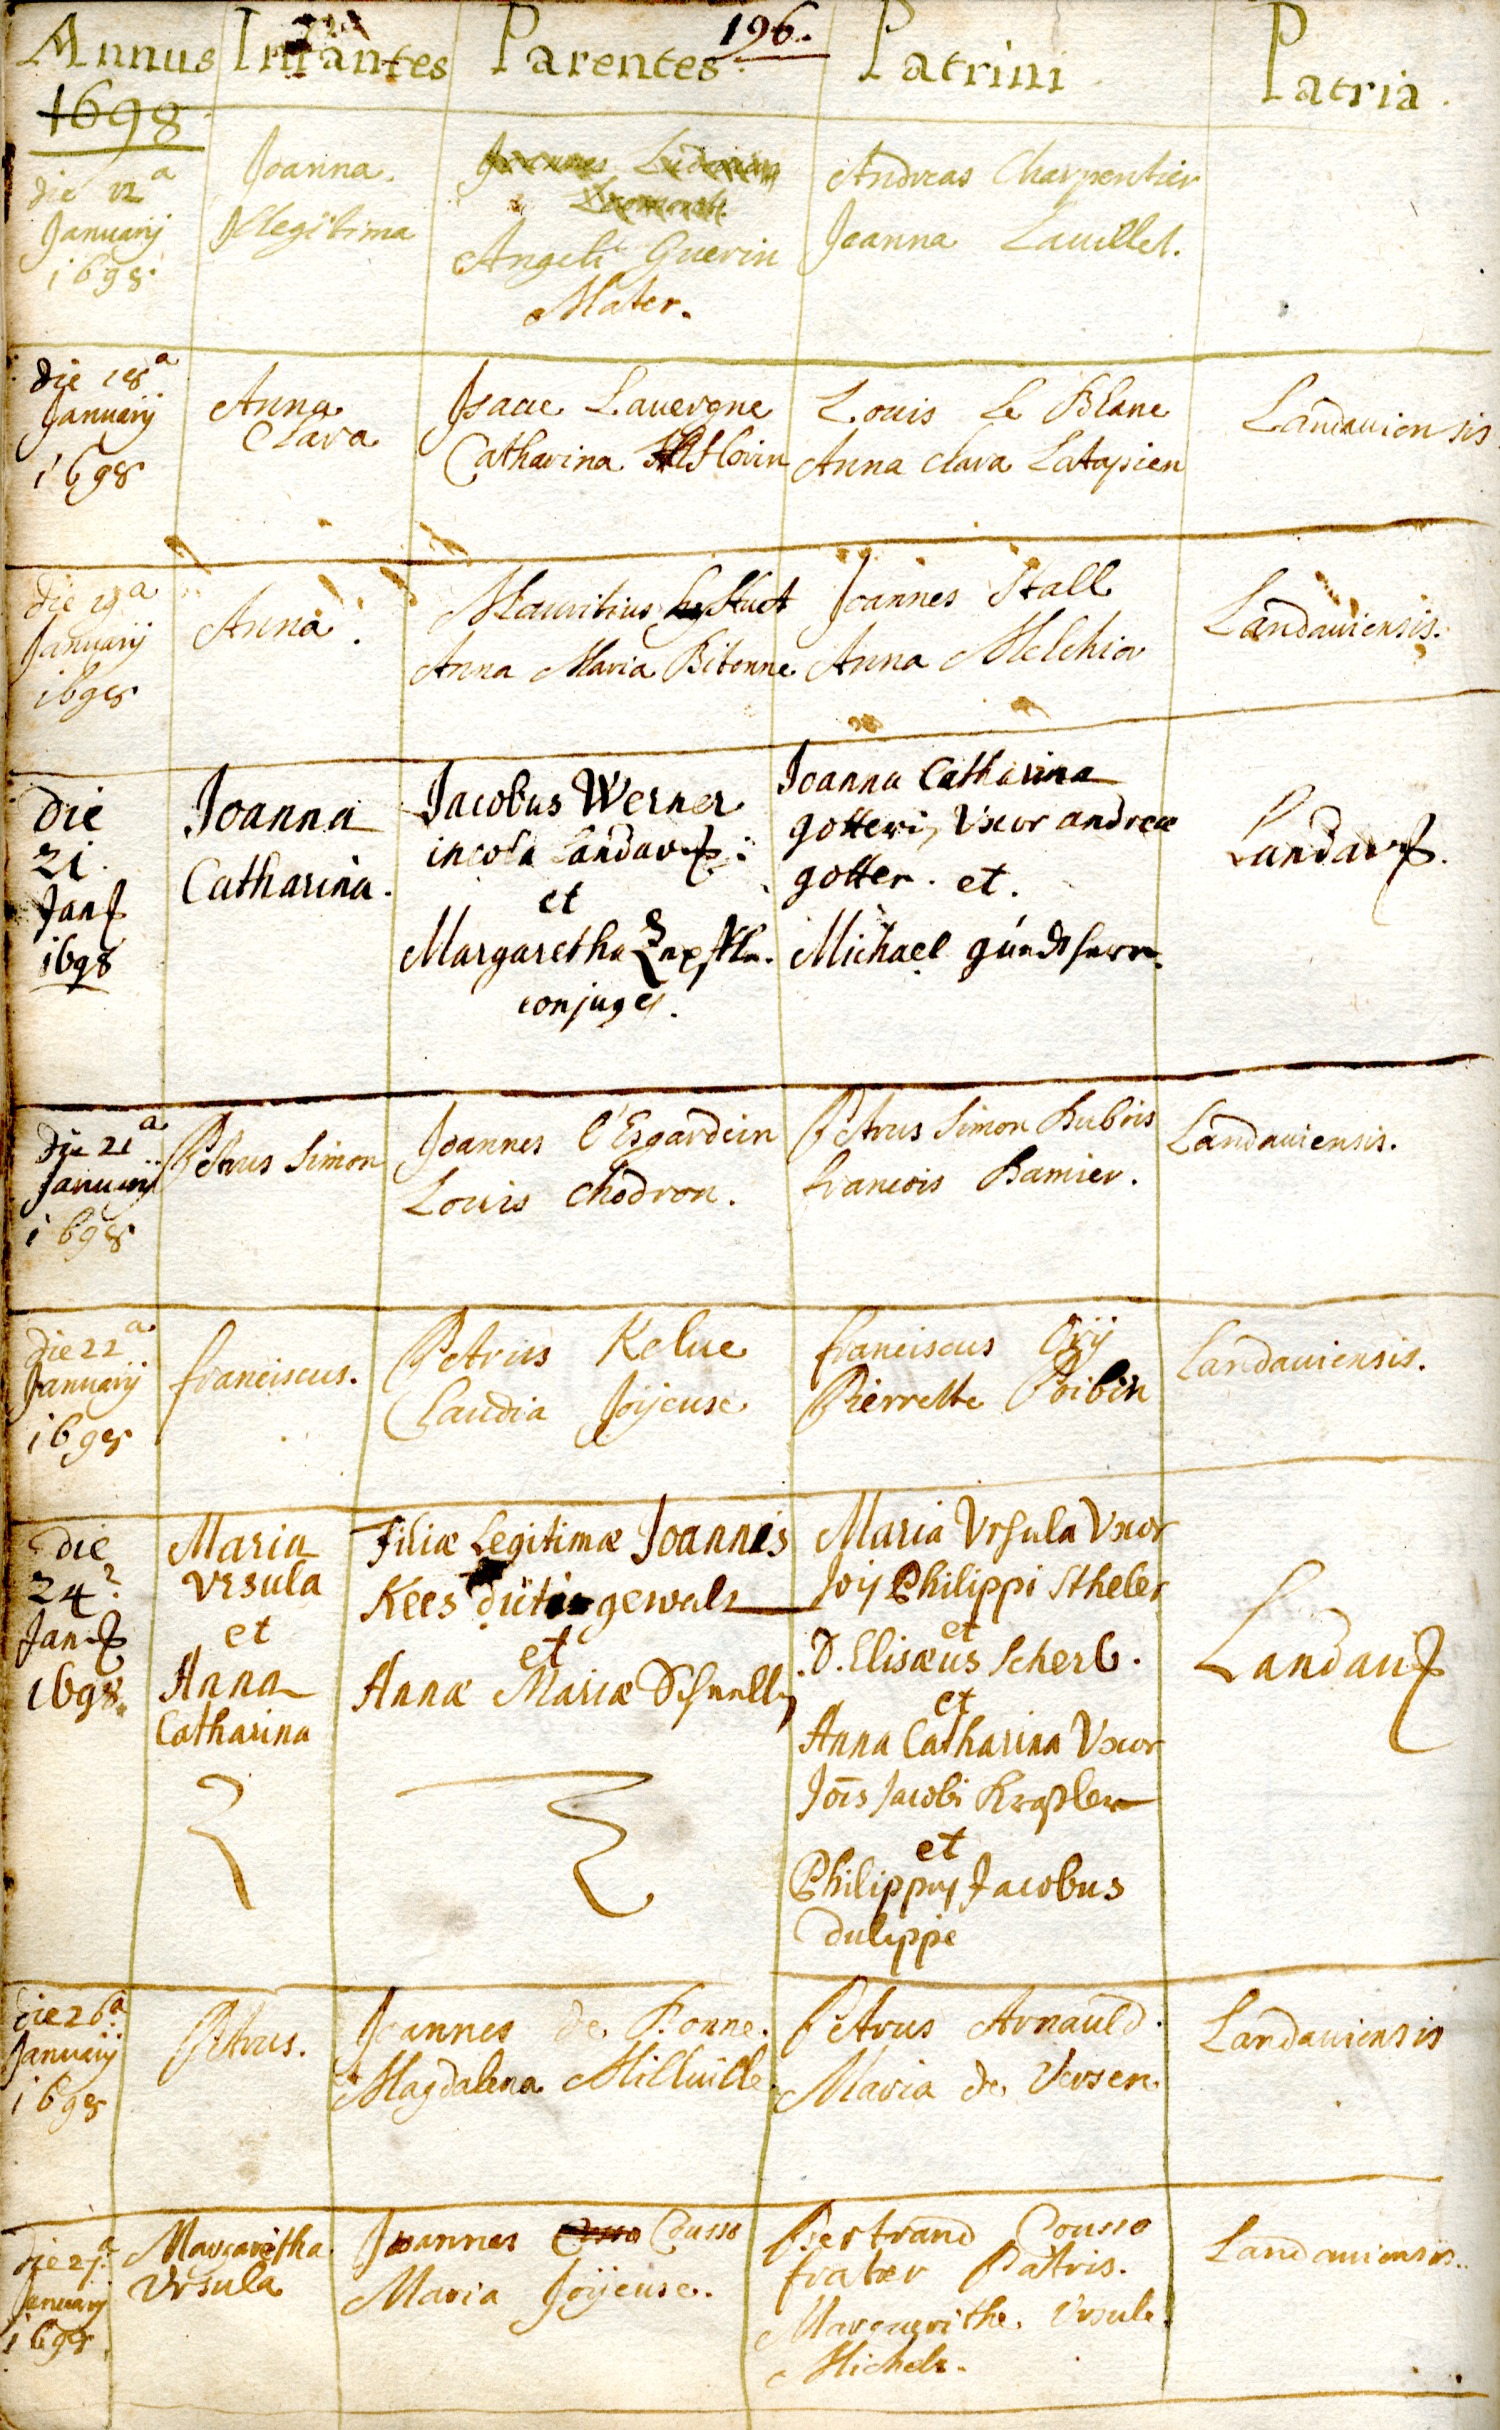 196.
Annus Infantes Parentes Patrini Patria
1698
die 12a
Januarij
1698.
Joanna
Illegitima
Angeli Guerin
Mater.
Andreas Charpentier
Joanna Lauillet.
die 18a
Januarij
1698
Anna
Clara
Isaac Lauergne
Catharina
Louis le Blanc
Anna Clara Latapien
Landauiensis
die 19a
Januarij
1698
Anna.
Mauritius
Anna Maria Bitonne
Joannes Stall
Anna Melchior
Landauiensis.
die
21.
Jan
1698
Joanna
Catharina.
Jacobus Werner
incola Landav
et
Margaretha
conjuges.
Joanna Catharina
gotteri, Vxor andreae
gotter. et.
Michael
Landav
die 21a
Januarij
1698
Petrus Simon
Joannes l'Esgardein
Louis Chodron.
Petrus Simon Dubois
francois Damier.
Landauiensis.
die 22a
Januarij
1698
franciscus.
Petrus Kelue
Claudia Joijeuse
franciscus Orij
Pierrette Poibin
Landauiensis.
die
24
Jan
1698.
Maria
Vrsula
et
Anna
Catharina
Filiæ Legitimæ Joannis
Kees
et
Annæ Mariæ Schnelly
Maria Vrsula Vxor
Jois Philippi Stheler
et
D. Elisæus Scherb.
et
Anna Catharina Vxor
Jois Jacobi
et
Philippus Jacobus
dulippe
Landau
die 26a
Januarij
1698
Petrus.
Joannes de Bonne.
Magdalena Milluille.
Petrus Arnauld.
Maria de Versen
Landauiensis
die 27a
Januarij
1698.
Margaritha
Vrsula
Joannes Cousso
Maria Joijeuse.
Bertrand Cousso
frater Patris.
Marguerithe Vrsule
Michele.
Landauiensis.